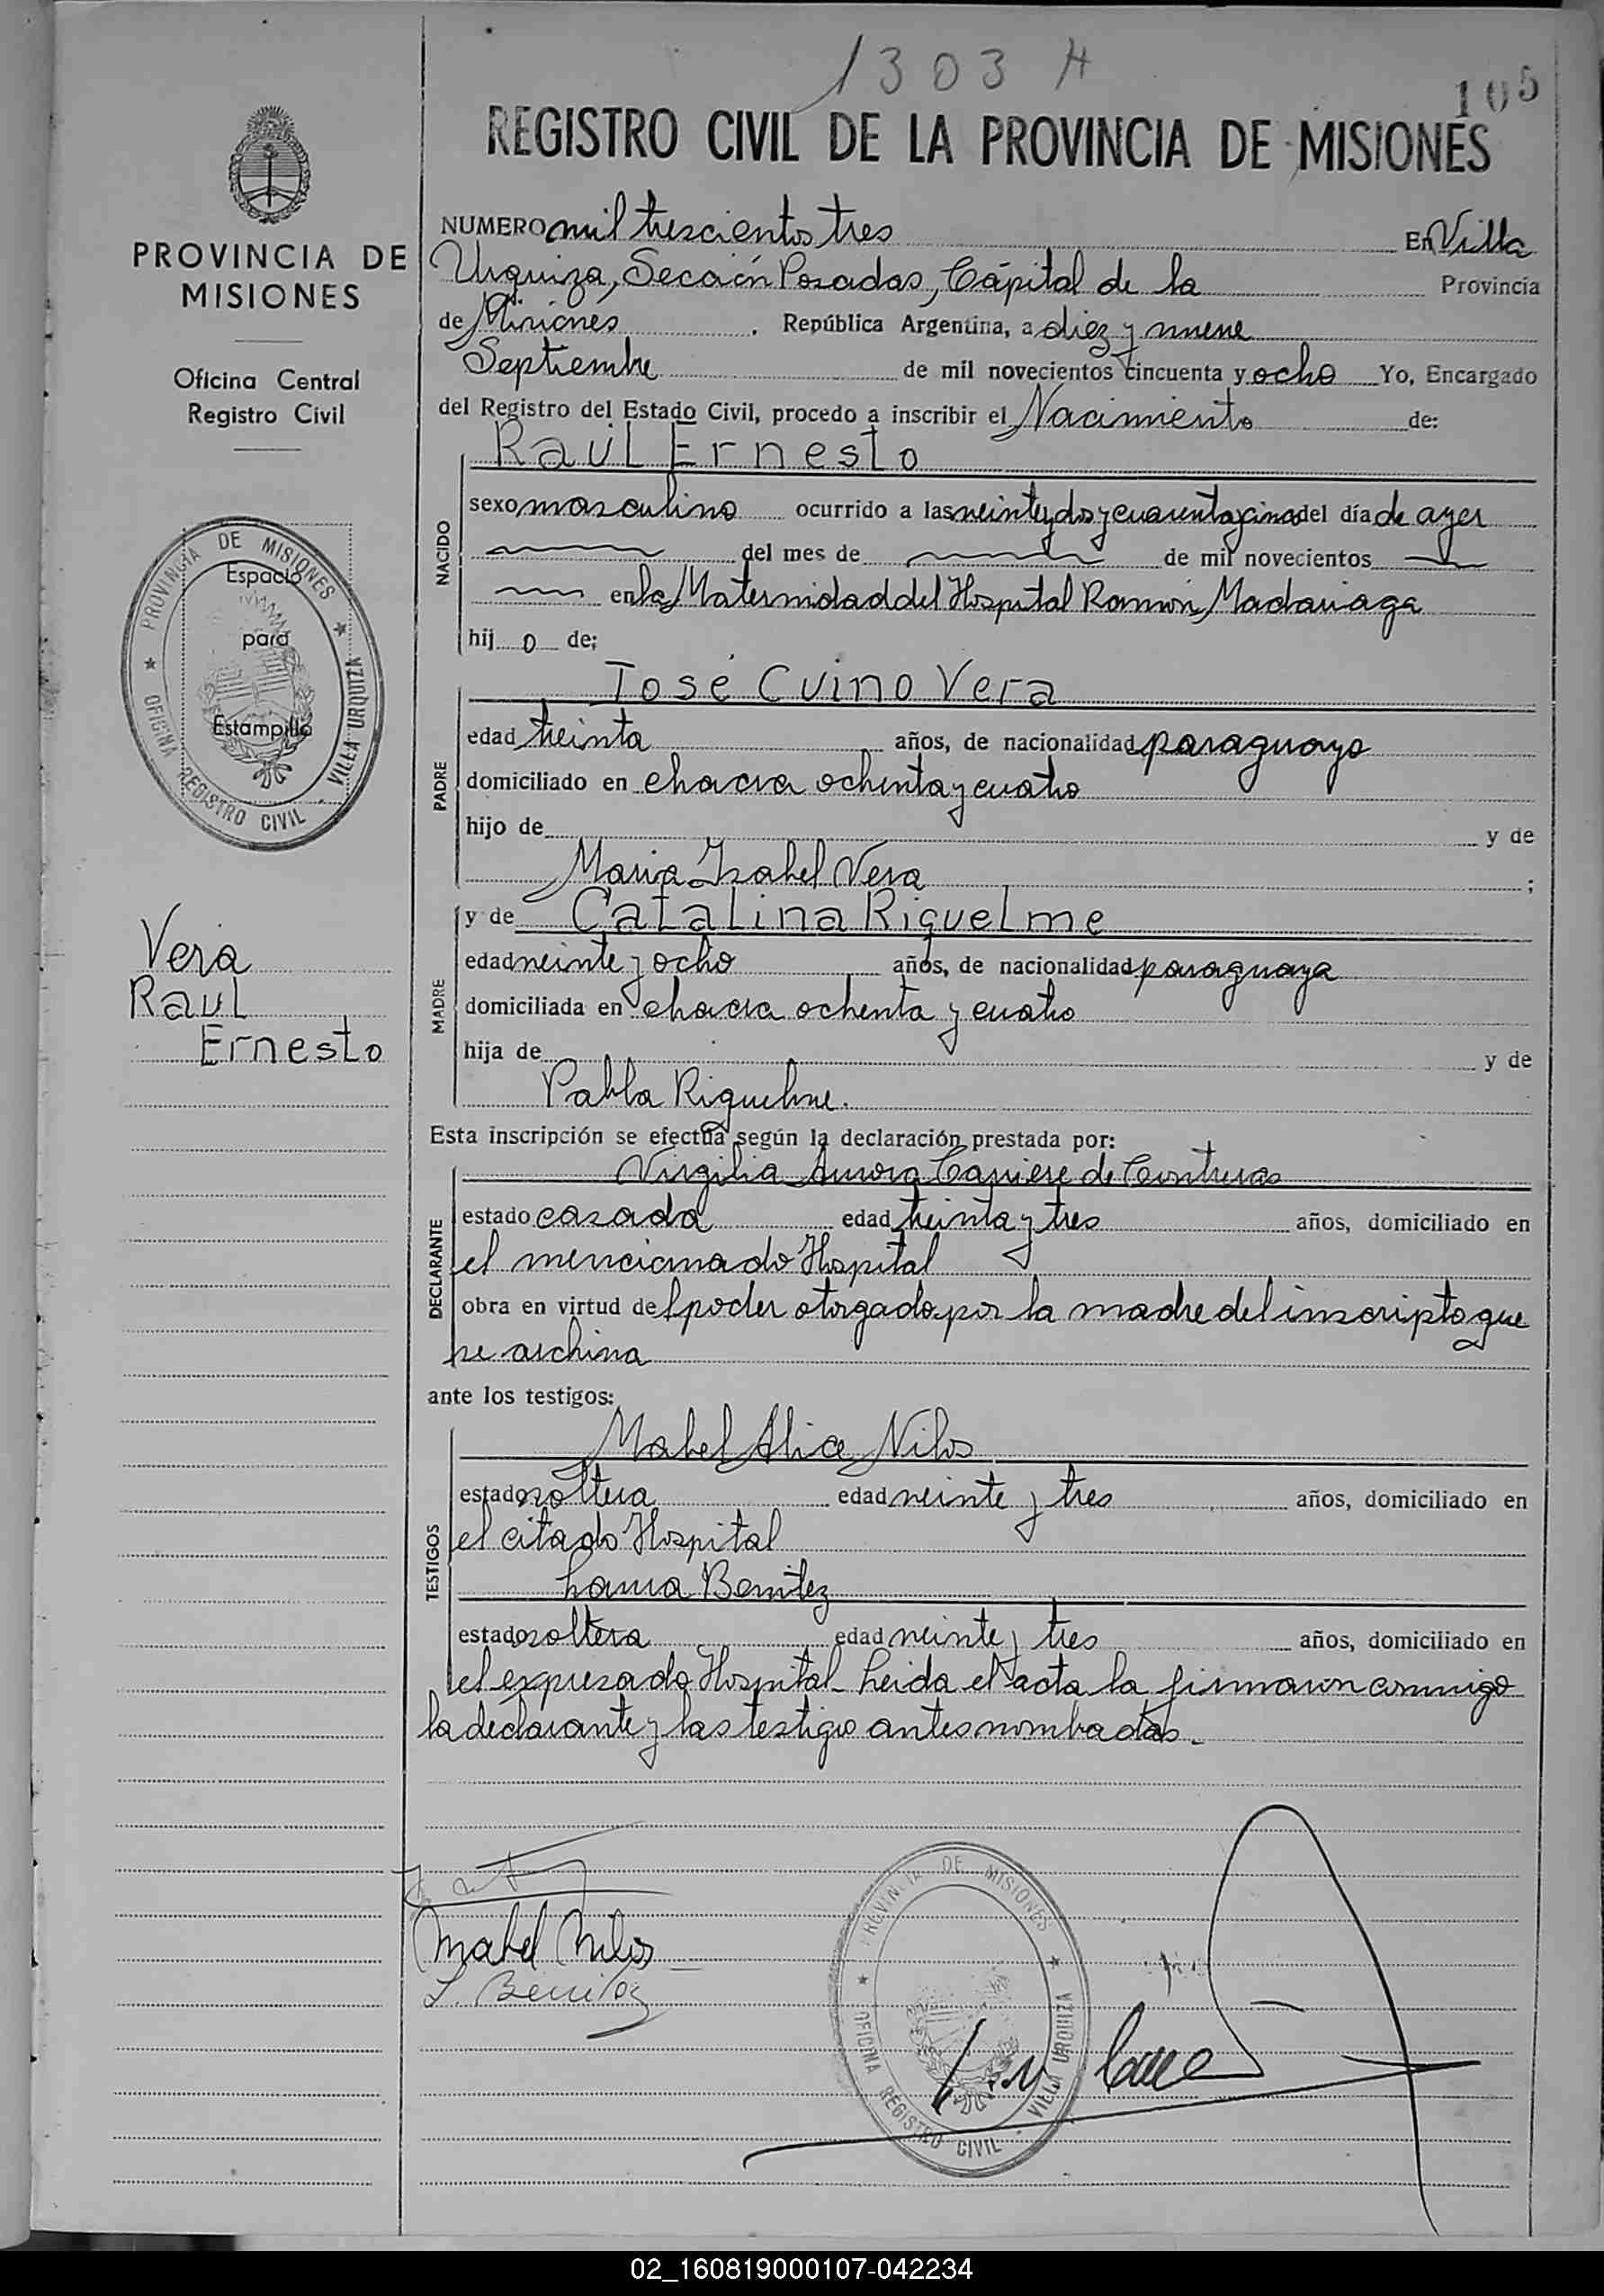 1303 H
105
REGISTRO CIVIL DE LA PROVINCIA DE MISIONES
PROVINCIA DE
MISIONES
Oficina Central
Registro Civil
PROVINCIA DE MISIONES
OFICINA REGISTRO CIVIL VILLA URQUIZA
Espacio
para
Estampilla
Vera
Raul
Ernesto
NUMERO mil trescientos tres En Villa
Urquiza, Sección Posadas, Cápital de la Provincia
de Misiones . República Argentina, a diez y nueve
Septiembre de mil novecientos cincuenta y ocho Yo, Encargado
del Registro del Estado Civil, procedo a inscribir el Nacimiento de:
Raúl Ernesto
NACIDO
sexo masculino ocurrido a las veinte y dos y cuarenta y cinco del día de ayer
del mes de de mil novecientos
en la Maternidad del Hospital Ramón Madariaga
hijo de;
José Cvino Vera
PADRE
edad treinta años, de nacionalidad paraguayo
domiciliado en chacra ochenta y cuatro
hijo de y de
Maria Isabel Vera ;
y de Catalina Riquelme
MADRE
edad veinte y ocho años, de nacionalidad paraguaya
domiciliada en chacra ochenta y cuatro
hija de y de
Pabla Riquelme.
Esta inscripción se efectúa según la declaración prestada por:
Virgilia Aurora de Contreras
DECLARANTE
estado casada edad treinta y tres años, domiciliado en
el mencionado Hospital
obra en virtud del poder otorgado por la madre del inscripto que
se archiva
ante los testigos:
Mabel Alice Nilos
TESTIGOS
estado soltera edad veinte y tres años, domiciliado en
el citado Hospital
Laura Benitez
estado soltera edad veinte y tres años, domiciliado en
el expresado Hospital - Leida el acta la firmaron conmigo
la declarante y las testigo antes nombradas.
Mabel Nilos
L. Benitez
PROVINCIA DE MISIONES
OFICINA REGISTRO CIVIL VILLA URQUIZA
02_160819000107-042234